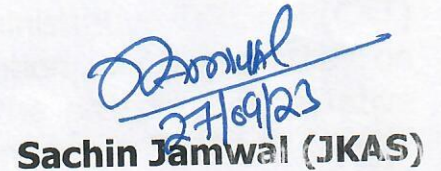 Jamwal
27/09/23
Sachin Jamwal (JKAS)